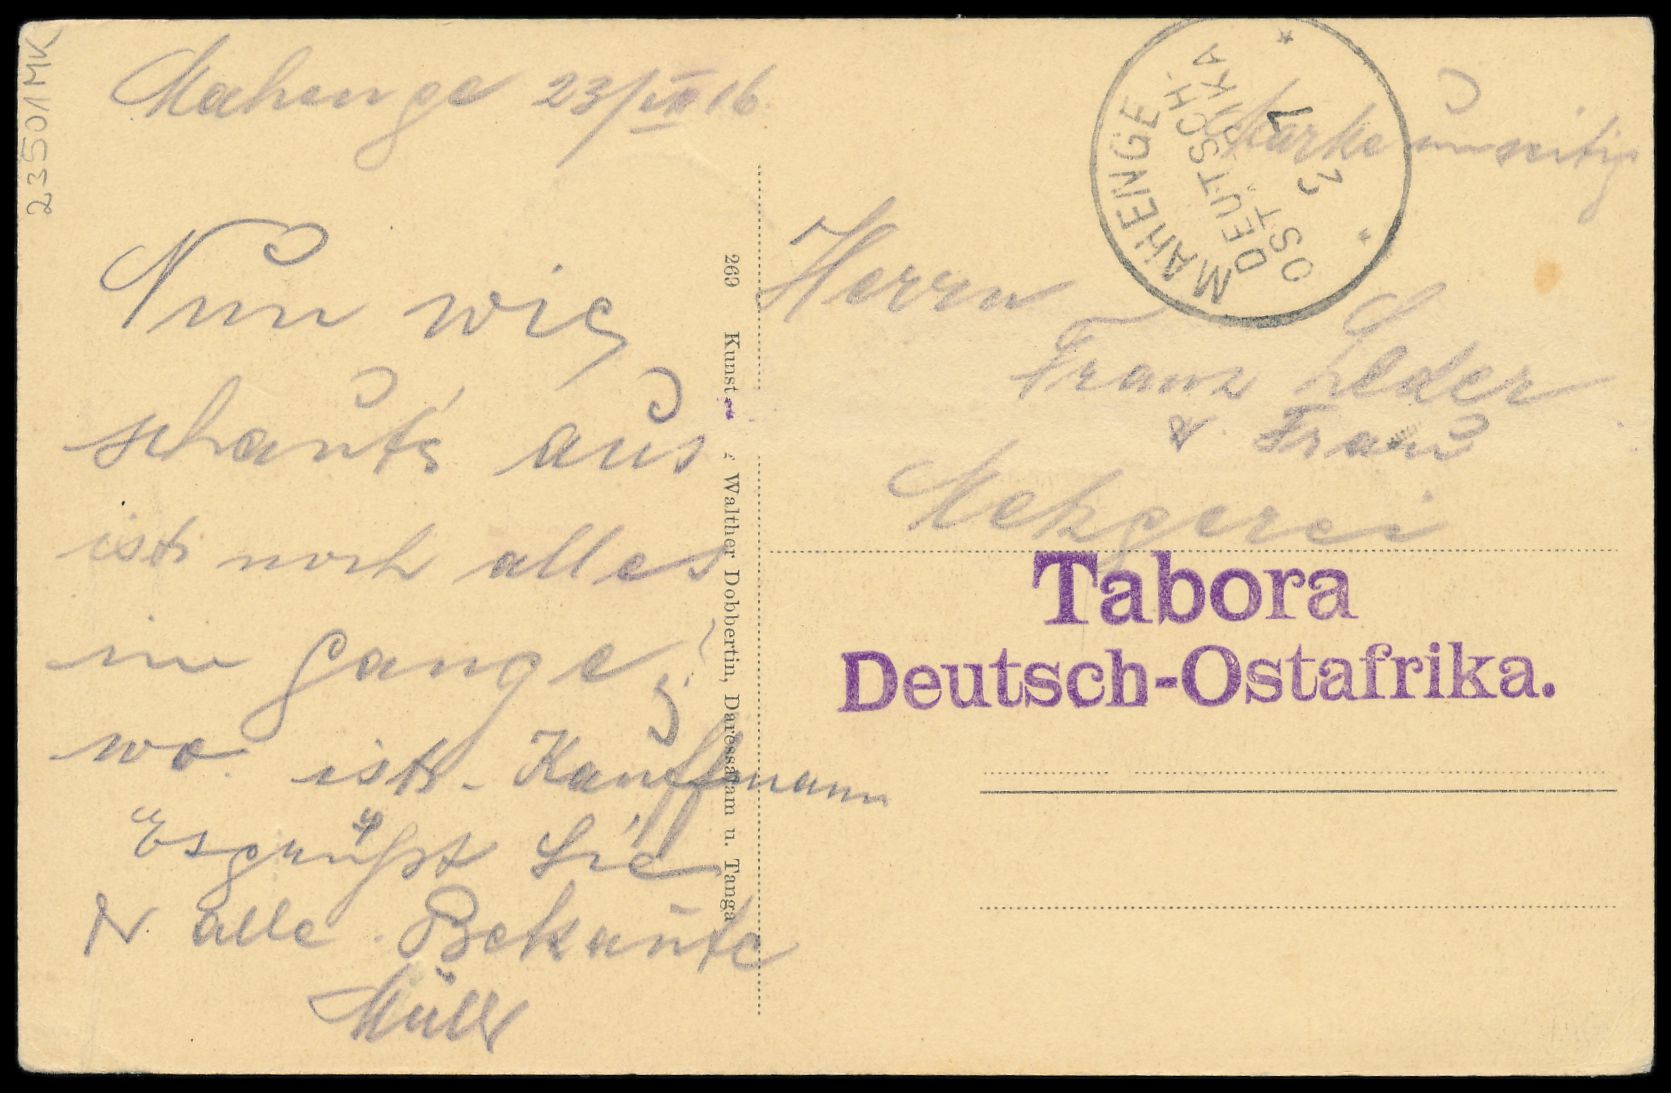 23501MK
Mahenge 23/VII 16
Nun wie
schaut's aus
ist noch alles
im Gange,
wo ist Kauffmann
Es grüßt Sie
u. alle Bekante
Müller
269 Kunst Walther Dobbertin, Daressalam u. Tanga
MAHENGE
DEUTSCH-
OSTAFRIKA
Marke umseitig
Herrn
Franz Leder
u. Frau
Metzgerei
Tabora
Deutsch-Ostafrika.